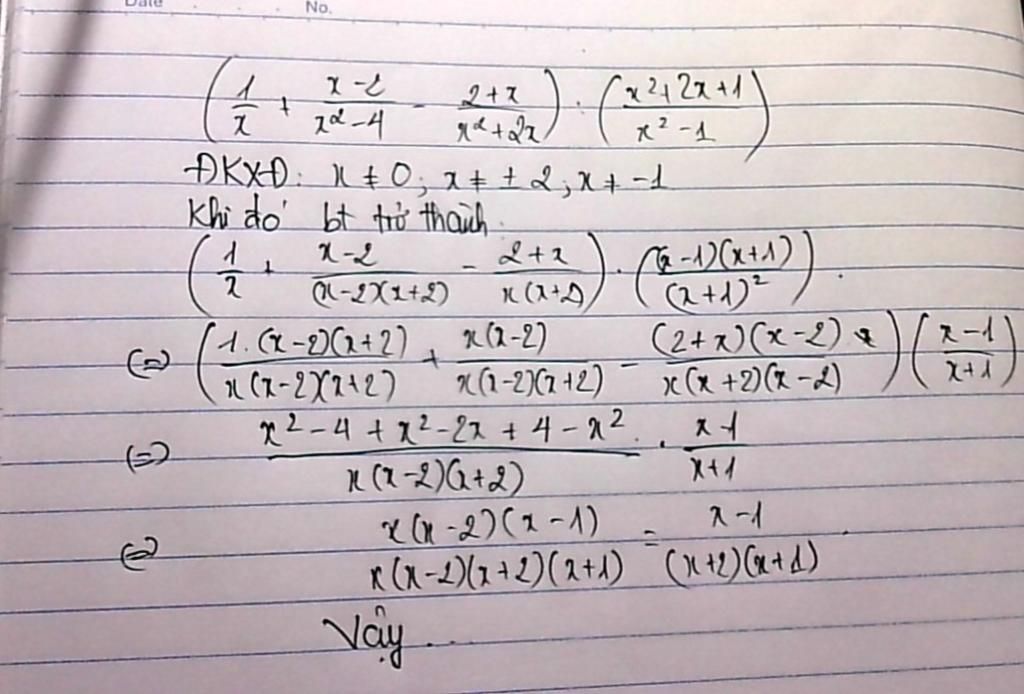 Date No.
(1/x + (x-2)/(x²-4) - (2+x)/(x²+2x)) : ((x²+2x+1)/(x²-1))
ĐKXĐ: x ≠ 0; x ≠ ± 2; x ≠ -1
Khi đó bt trở thành
(1/x + (x-2)/((x-2)(x+2)) - (2+x)/(x(x+2))) · ((x-1)(x+1)/(x+1)²).
(=) (1.(x-2)(x+2)/(x(x-2)(x+2)) + x(x-2)/(x(x-2)(x+2)) - (2+x)(x-2)/(x(x+2)(x-2))) ((x-1)/(x+1))
(=) (x²-4+x²-2x+4-x²)/(x(x-2)(x+2)) · (x-1)/(x+1)
(=) x(x-2)(x-1)/(x(x-2)(x+2)(x+1)) = (x-1)/((x+2)(x+1))
Vậy...